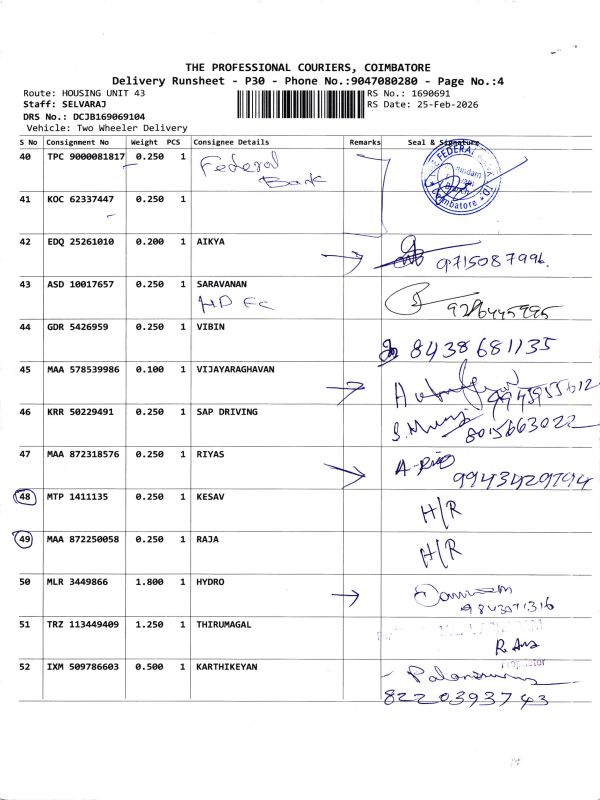 THE PROFESSIONAL COURIERS, COIMBATORE
Delivery Runsheet - P30 - Phone No.:9047080280 - Page No.:4
Route: HOUSING UNIT 43
RS No.: 1690691
Staff: SELVARAJ
RS Date: 25-Feb-2026
DRS No.: DCJB169069104
Vehicle: Two Wheeler Delivery
S No Consignment No Weight PCS Consignee Details Remarks Seal & Signature
40 TPC 9000081817 0.250 1 Federal Bank
FEDERAL
Coimbatore
41 KOC 62337447 0.250 1
42 EDQ 25261010 0.200 1 AIKYA
9715087996
43 ASD 10017657 0.250 1 SARAVANAN
HD Fc
44 GDR 5426959 0.250 1 VIBIN
8438681135
45 MAA 578539986 0.100 1 VIJAYARAGHAVAN
46 KRR 50229491 0.250 1 SAP DRIVING
8015663022
47 MAA 872318576 0.250 1 RIYAS
9943429794
48 MTP 1411135 0.250 1 KESAV H/R
49 MAA 872250058 0.250 1 RAJA H/R
50 MLR 3449866 1.800 1 HYDRO
51 TRZ 113449409 1.250 1 THIRUMAGAL
Proprietor
52 IXM 509786603 0.500 1 KARTHIKEYAN
8220393743